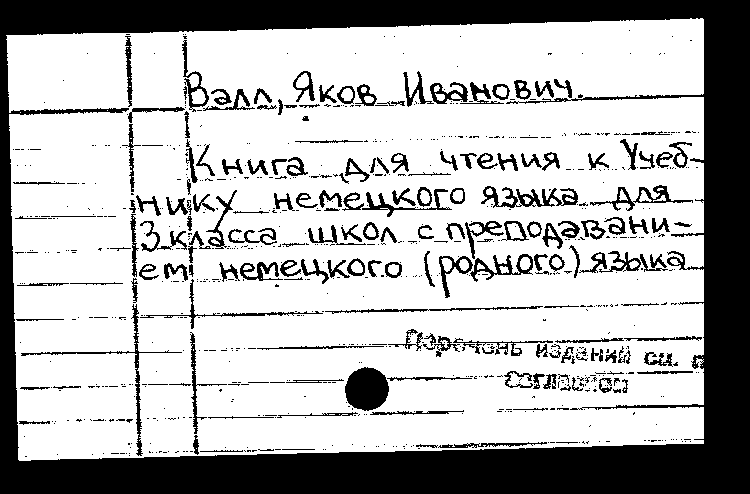 Валл, Яков Иванович.
Книга для чтения к Учеб-
нику немецкого языка для
3 класса школ с преподавани-
ем немецкого (родного) языка
Перечень изданий см. п